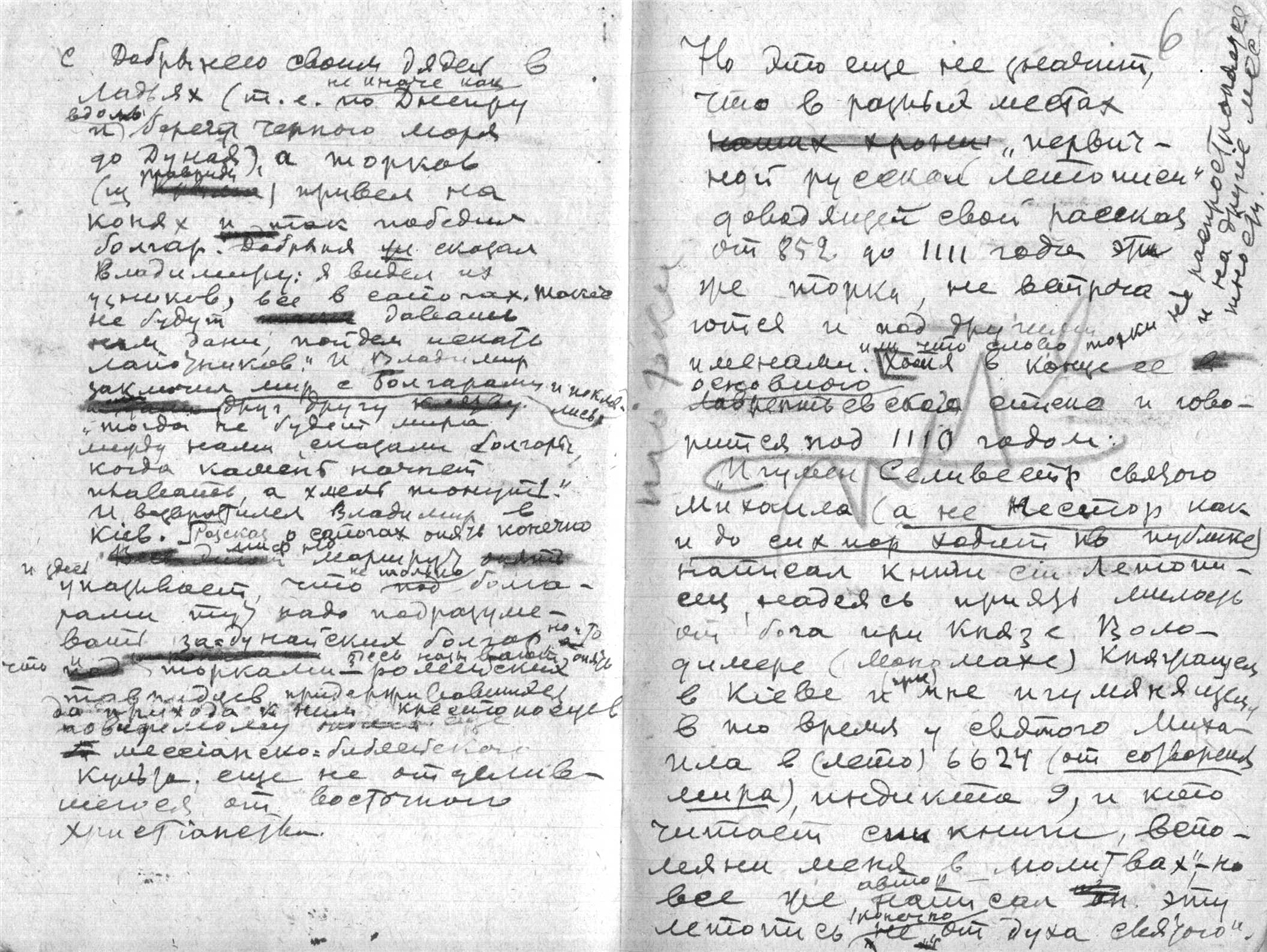 с Добрынею своим дядей в
не иначе как
ладьях (т. е. по Днепру
вдоль
и берега Черного моря
до Дуная), а торков
привел на
конях и так победил
болгар. Добрыня же сказал
Владимиру: я видел их
узников, все в сапогах. Такие
не будут давать
нам дани, пойдем искать
лапотников." И Владимир
заключил мир с болгарами и покля-
лись
друг другу
"тогда не будет мира
между нами, сказали болгары,
когда камень начнет
плавать, а хмель тонуть."
И возвратился Владимир в
Кіев. Рассказ о сапогах опять конечно
маршрут
и здесь
не только
указывает, что под болга-
рами тут надо подразуме-
вать за-дунайских болгар, но
что и торками - ромейских
придерживавшихся
до прихода к ним крестоносцев
повидимому
мессіанско-библейского
культа, еще не отделив-
шегося от восточного
христіанства.
6
Но это еще не значит,
что в разных местах
наших хроник „первич-
ной русской летописи"
доводящей свой рассказ
от 852 до 1111 года эти
же торки, не встреча-
ются и под другими
именами. или что слово торки не распространялось
и на другие мест-
ности.
Хотя в конце ее
основного
Лаврентьевского списка и гово-
рится под 1110 годом:
„Игумен Селивестр святого
Михаила (а не Нестор как
и до сих пор ходит по публике)
написал книги сіи летопи-
сец, надеясь принять милость
от бога при Князе Воло-
димере (Мономахе) Княжащем
в Кіеве и (при) мне игуменящем
в то время у святого Миха-
ила в (лето) 6624 (от сотворения
мира), индикта 9, и кто
читает сии книги, вспо-
мяни меня в молитвах", - но
все же автор написал он эту
конечно
летопись не „от духа святого".
торки